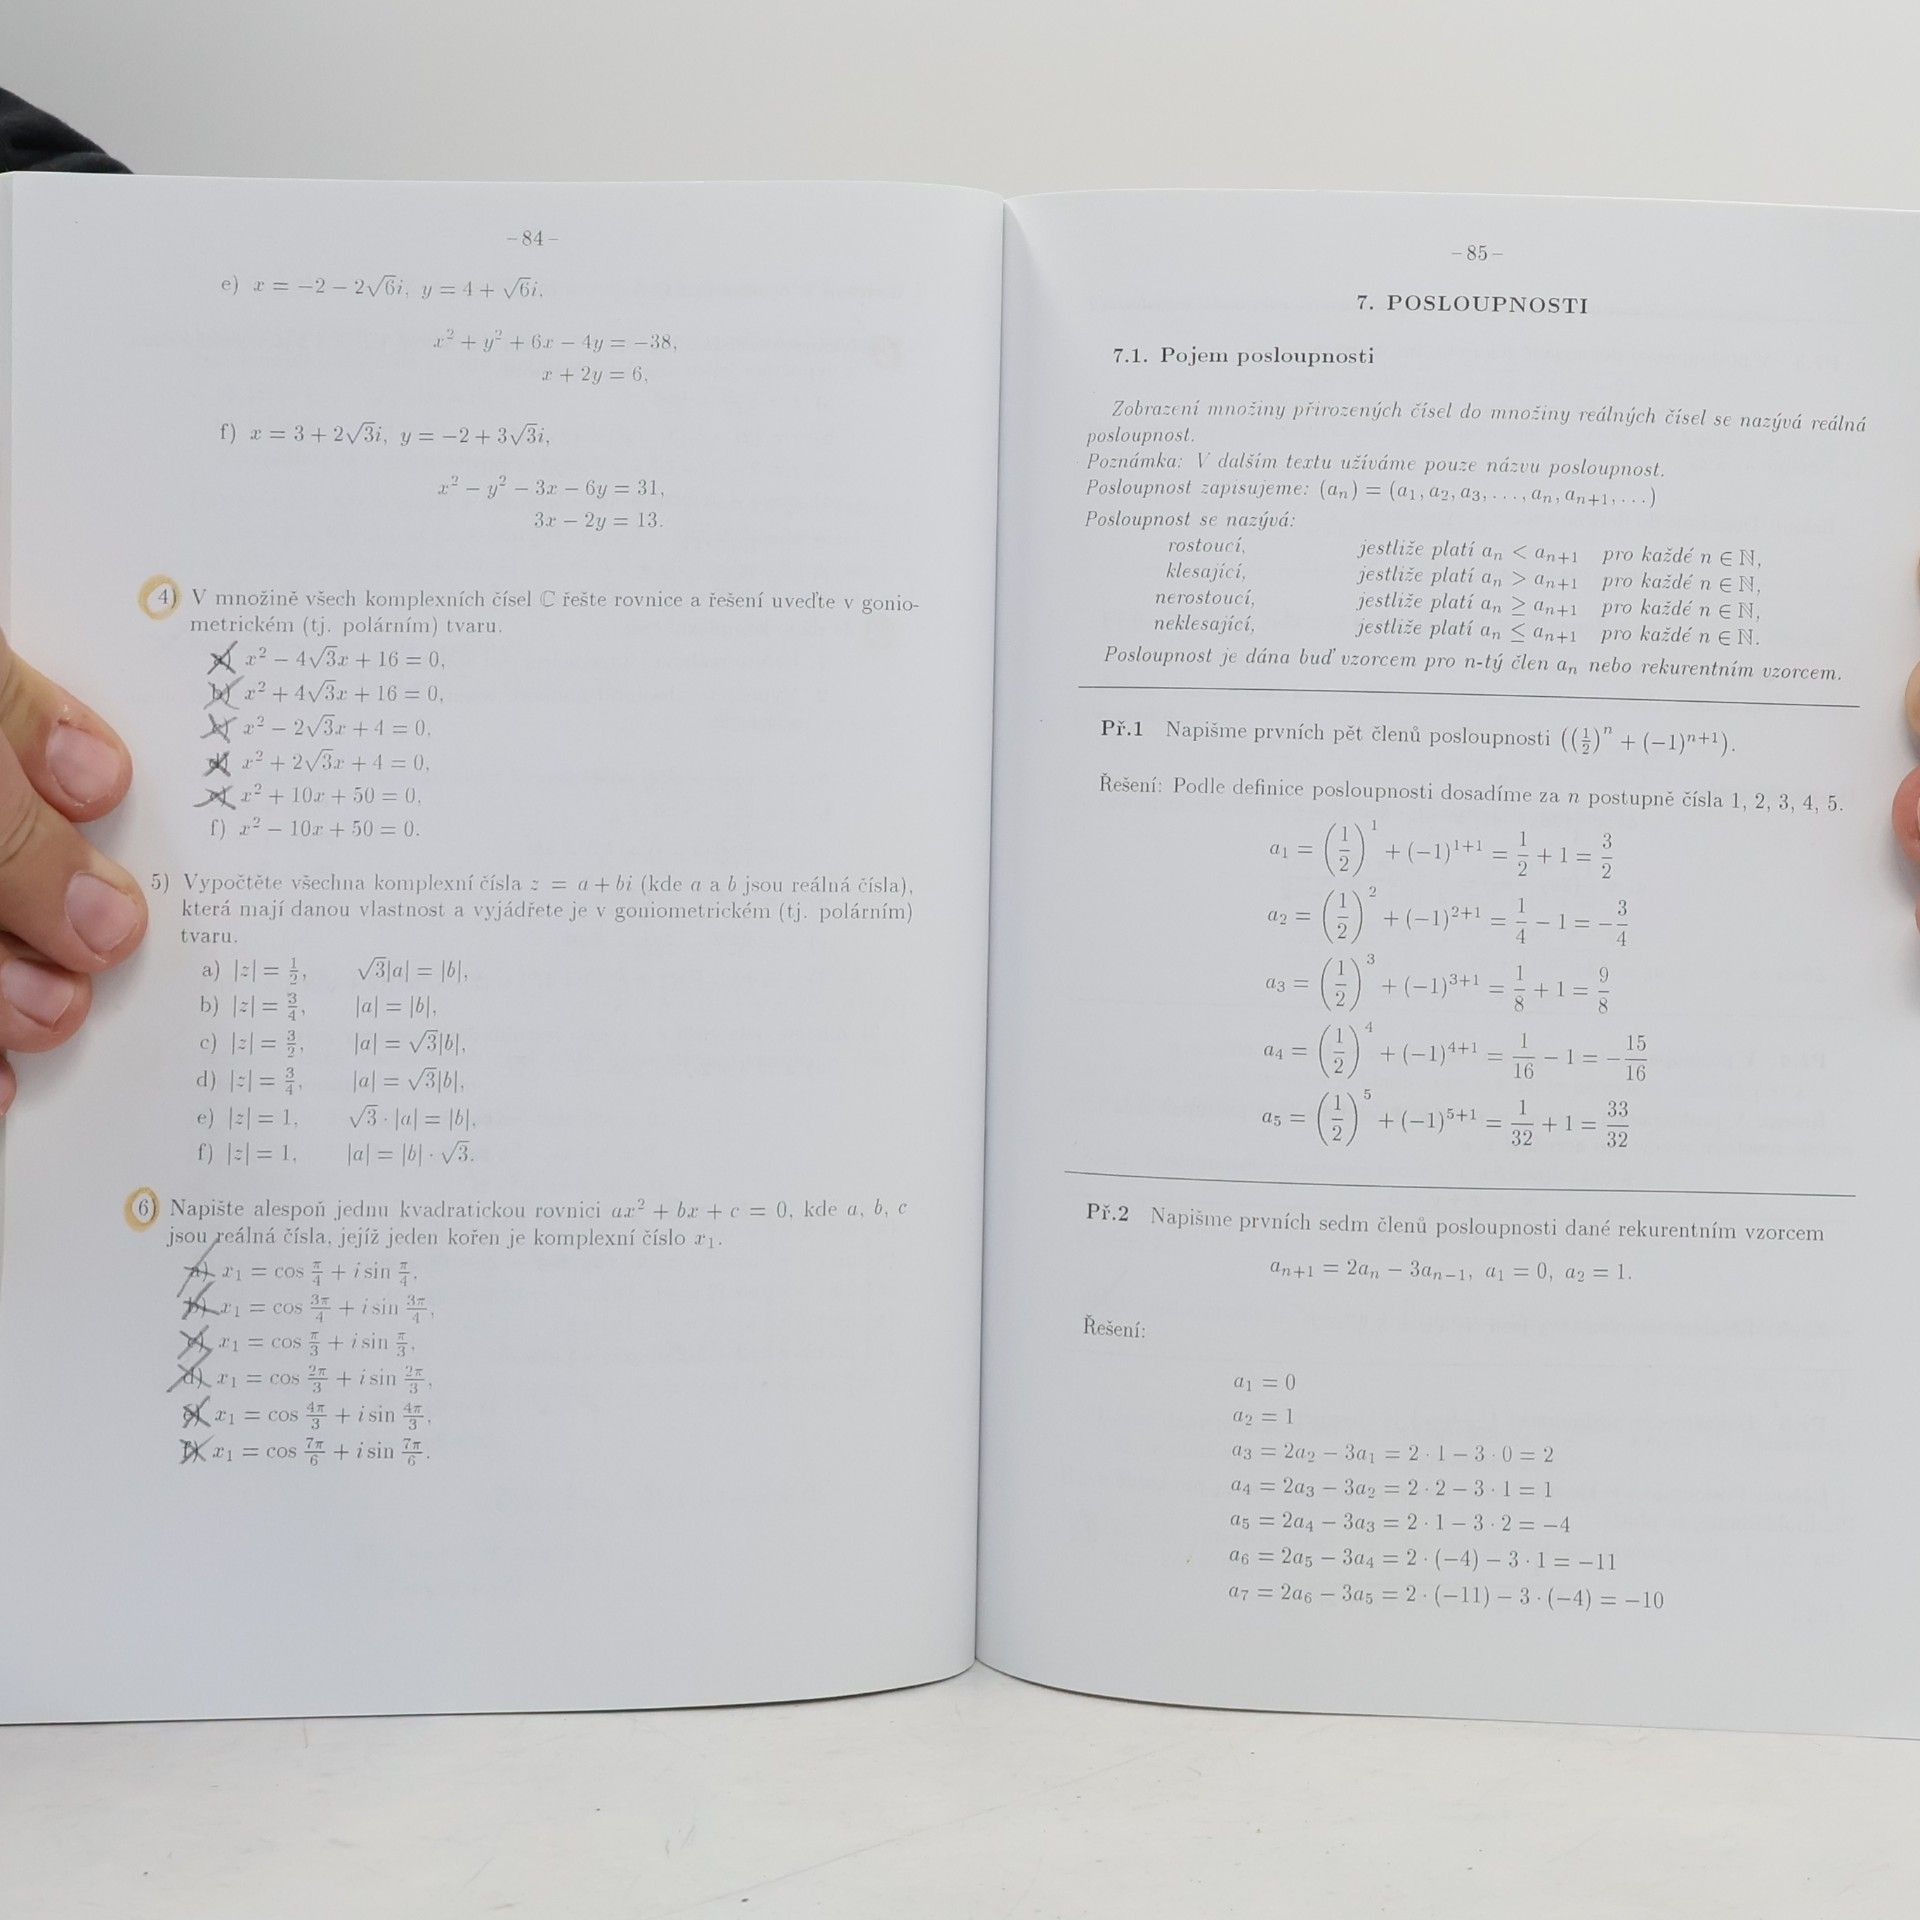 – 84 –
e) x = −2 − 2√6i, y = 4 + √6i,
x² + y² + 6x − 4y = −38,
x + 2y = 6,
f) x = 3 + 2√3i, y = −2 + 3√3i,
x² − y² − 3x − 6y = 31,
3x − 2y = 13.
4) V množině všech komplexních čísel ℂ řešte rovnice a řešení uveďte v gonio-
metrickém (tj. polárním) tvaru.
a) x² − 4√3x + 16 = 0,
b) x² + 4√3x + 16 = 0,
c) x² − 2√3x + 4 = 0,
d) x² + 2√3x + 4 = 0,
e) x² + 10x + 50 = 0,
f) x² − 10x + 50 = 0.
5) Vypočtěte všechna komplexní čísla z = a + bi (kde a a b jsou reálná čísla),
která mají danou vlastnost a vyjádřete je v goniometrickém (tj. polárním)
tvaru.
a) |z| = 1/2, √3|a| = |b|,
b) |z| = 3/4, |a| = |b|,
c) |z| = 3/2, |a| = √3|b|,
d) |z| = 3/4, |a| = √3|b|,
e) |z| = 1, √3 · |a| = |b|,
f) |z| = 1, |a| = |b| · √3.
6) Napište alespoň jednu kvadratickou rovnici ax² + bx + c = 0, kde a, b, c
jsou reálná čísla, jejíž jeden kořen je komplexní číslo x₁.
a) x₁ = cos π/4 + i sin π/4,
b) x₁ = cos 3π/4 + i sin 3π/4,
c) x₁ = cos π/3 + i sin π/3,
d) x₁ = cos 2π/3 + i sin 2π/3,
e) x₁ = cos 4π/3 + i sin 4π/3,
f) x₁ = cos 7π/6 + i sin 7π/6.
– 85 –
7. POSLOUPNOSTI
7.1. Pojem posloupnosti
Zobrazení množiny přirozených čísel do množiny reálných čísel se nazývá reálná
posloupnost.
Poznámka: V dalším textu užíváme pouze názvu posloupnost.
Posloupnost zapisujeme: (aₙ) = (a₁, a₂, a₃, . . . , aₙ, aₙ₊₁, . . .)
Posloupnost se nazývá:
rostoucí, jestliže platí aₙ < aₙ₊₁ pro každé n ∈ ℕ,
klesající, jestliže platí aₙ > aₙ₊₁ pro každé n ∈ ℕ,
nerostoucí, jestliže platí aₙ ≥ aₙ₊₁ pro každé n ∈ ℕ,
neklesající, jestliže platí aₙ ≤ aₙ₊₁ pro každé n ∈ ℕ.
Posloupnost je dána buď vzorcem pro n-tý člen aₙ nebo rekurentním vzorcem.
Př.1 Napišme prvních pět členů posloupnosti ((1/2)ⁿ + (−1)ⁿ⁺¹).
Řešení: Podle definice posloupnosti dosadíme za n postupně čísla 1, 2, 3, 4, 5.
a₁ = (1/2)¹ + (−1)¹⁺¹ = 1/2 + 1 = 3/2
a₂ = (1/2)² + (−1)²⁺¹ = 1/4 − 1 = −3/4
a₃ = (1/2)³ + (−1)³⁺¹ = 1/8 + 1 = 9/8
a₄ = (1/2)⁴ + (−1)⁴⁺¹ = 1/16 − 1 = −15/16
a₅ = (1/2)⁵ + (−1)⁵⁺¹ = 1/32 + 1 = 33/32
Př.2 Napišme prvních sedm členů posloupnosti dané rekurentním vzorcem
aₙ₊₁ = 2aₙ − 3aₙ₋₁, a₁ = 0, a₂ = 1.
Řešení:
a₁ = 0
a₂ = 1
a₃ = 2a₂ − 3a₁ = 2 · 1 − 3 · 0 = 2
a₄ = 2a₃ − 3a₂ = 2 · 2 − 3 · 1 = 1
a₅ = 2a₄ − 3a₃ = 2 · 1 − 3 · 2 = −4
a₆ = 2a₅ − 3a₄ = 2 · (−4) − 3 · 1 = −11
a₇ = 2a₆ − 3a₅ = 2 · (−11) − 3 · (−4) = −10